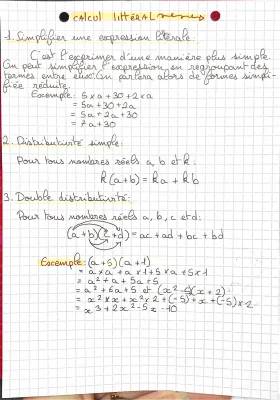 CALCUL LITTÉRAL
1. Simplifier une expression litérale
C'est l'exprimer d'une manière plus simple.
On peut simplifier l'expression en regroupant des
termes entre eux. On parlera alors de formes simpli-
fiée réduite.
Exemple: 5 x a + 30 + 2 x a
= 5a + 30 + 2a
= 5a + 2a + 30
= 7a + 30
2. Distributivité simple:
Pour tous nombres réels a, b et k:
k(a+b) = ka + kb
3. Double distributivité:
Pour tous nombres réels a, b, c et d:
(a+b)(c+d) = ac + ad + bc + bd
Exemple: (a+5)(a+1)
= a x a + a x 1 + 5 x a + 5 x 1
= a² + a + 5a + 5
= a² + 6a + 5 et (x²-5)(x+2):
= x² x x + x² x 2 + (-5) x x + (-5) x 2
= x3 + 2x² - 5x - 10